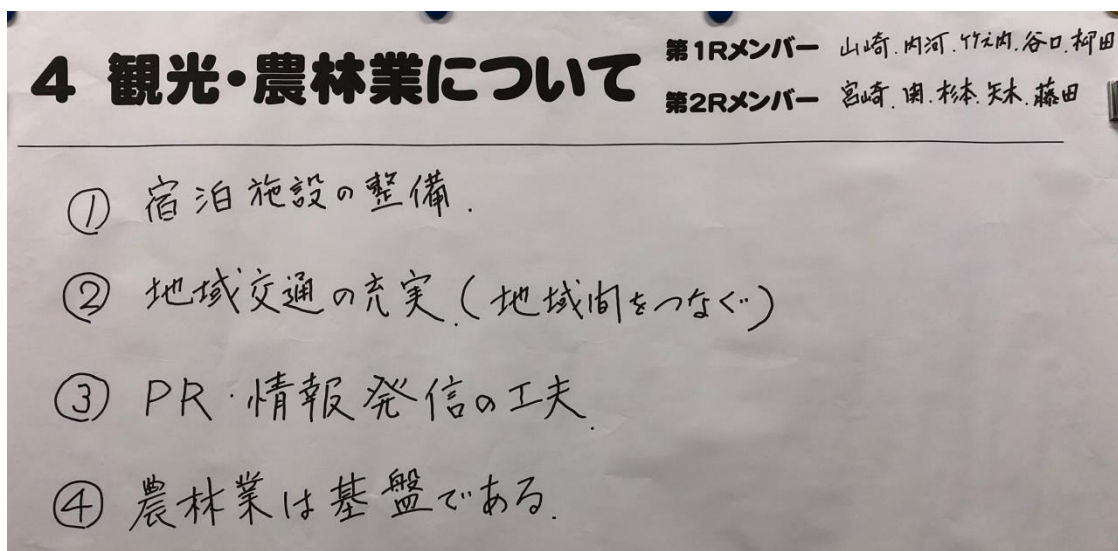 4 観光・農林業について
第1Rメンバー 山崎.内河.竹之内.谷口.柳田
第2Rメンバー 宮崎.関.杉本.矢木.藤田
① 宿泊施設の整備.
② 地域交通の充実.(地域間をつなぐ)
③ PR・情報発信の工夫.
④ 農林業は基盤である.